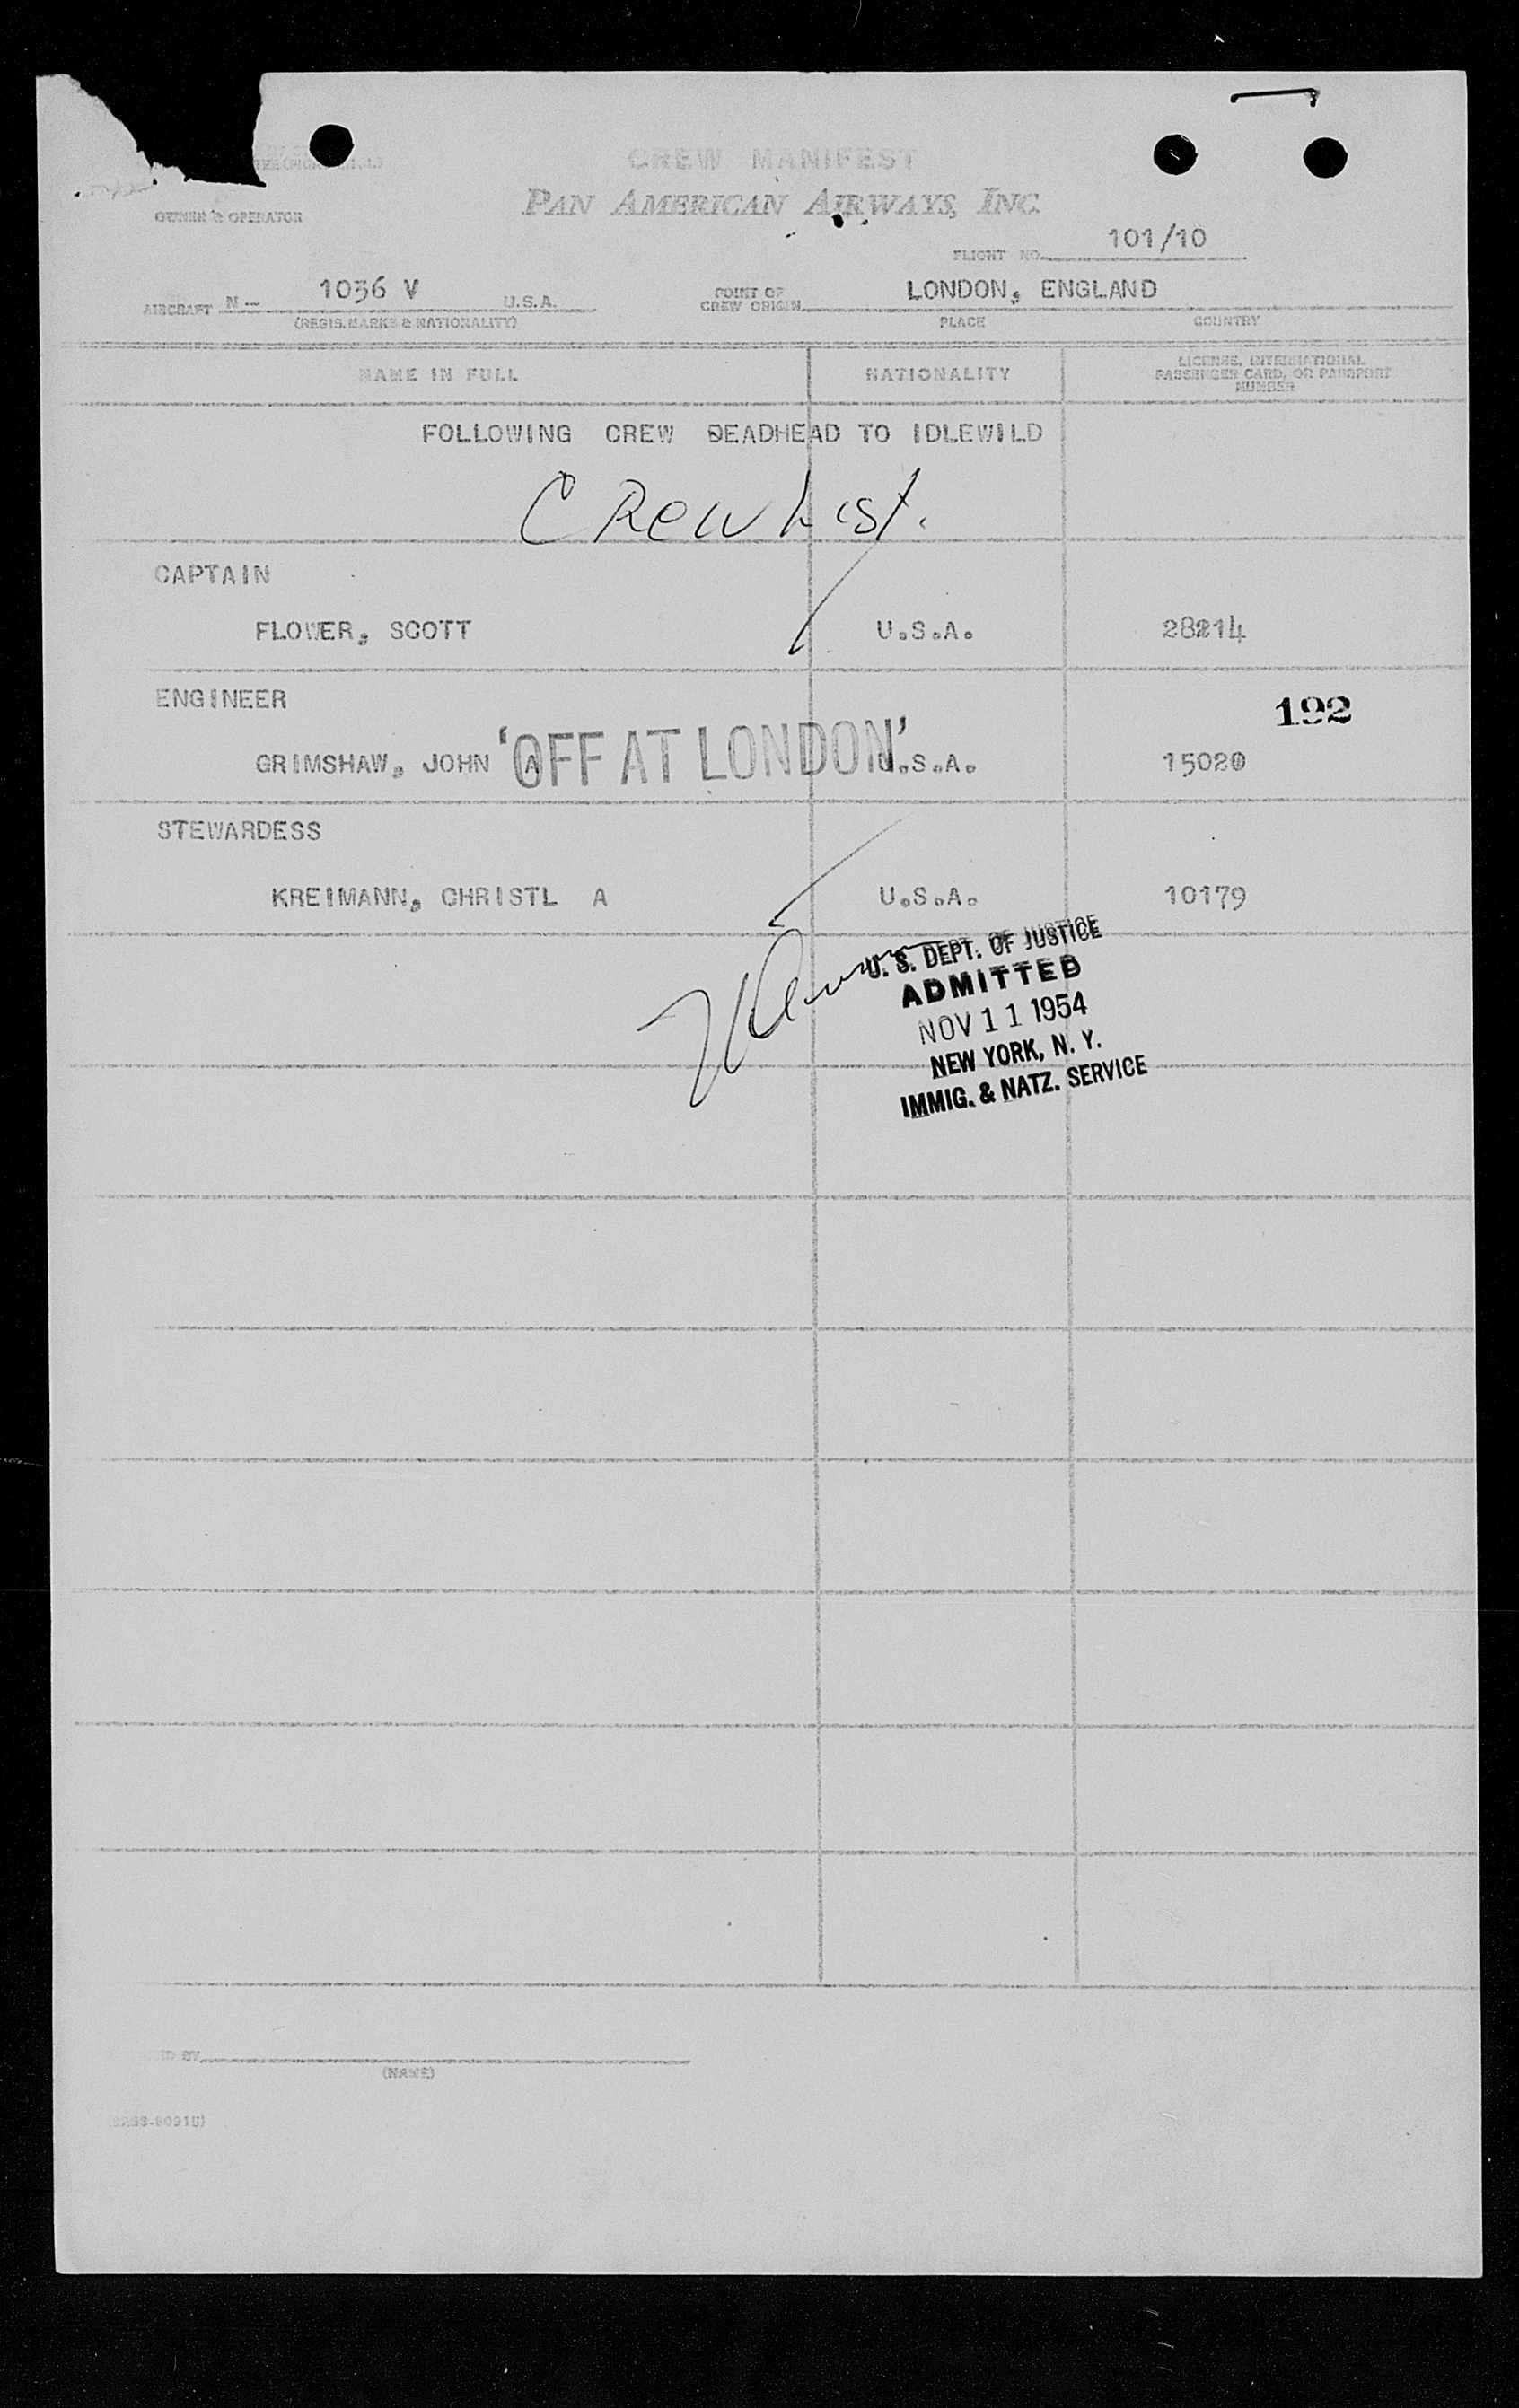 CREW MANIFEST
PAN AMERICAN AIRWAYS, INC.
OWNER & OPERATOR
FLIGHT NO. 101/10
AIRCRAFT N- 1036 V U.S.A. POINT OF CREW ORIGIN LONDON, ENGLAND
(REGIS. MARKS & NATIONALITY) PLACE COUNTRY
NAME IN FULL NATIONALITY LICENSE, INTERNATIONAL PASSENGER CARD, OR PASSPORT NUMBER
FOLLOWING CREW DEADHEAD TO IDLEWILD
CRew List.
CAPTAIN
FLOWER, SCOTT U.S.A. 28214
ENGINEER
192
GRIMSHAW, JOHN A U.S.A. 15020
'OFF AT LONDON'
STEWARDESS
KREIMANN, CHRISTL A U.S.A. 10179
U. S. DEPT. OF JUSTICE
ADMITTED
NOV 11 1954
NEW YORK, N. Y.
IMMIG. & NATZ. SERVICE
BY
(NAME)